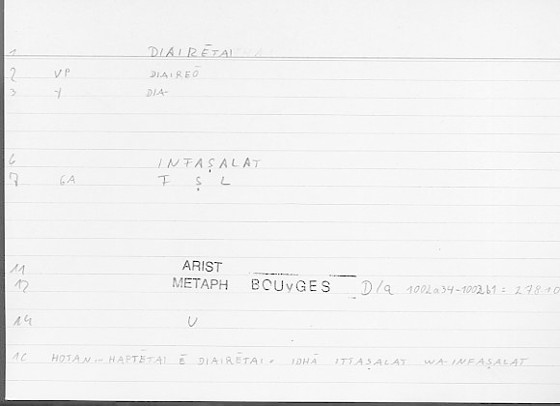 1 DIAIRĒTAI
2 VP DIAIREŌ
3 Y DIA-
6 INFAṢALAT
7 6A F Ṣ L
11 ARIST
12 METAPH BOUyGES D/a 1002a34-1002b1 = 278.10
14 U
16 HOTAN - HAPTĒTAI Ē DIAIRĒTAI. IDHĀ ITTAṢALAT WA-INFAṢALAT